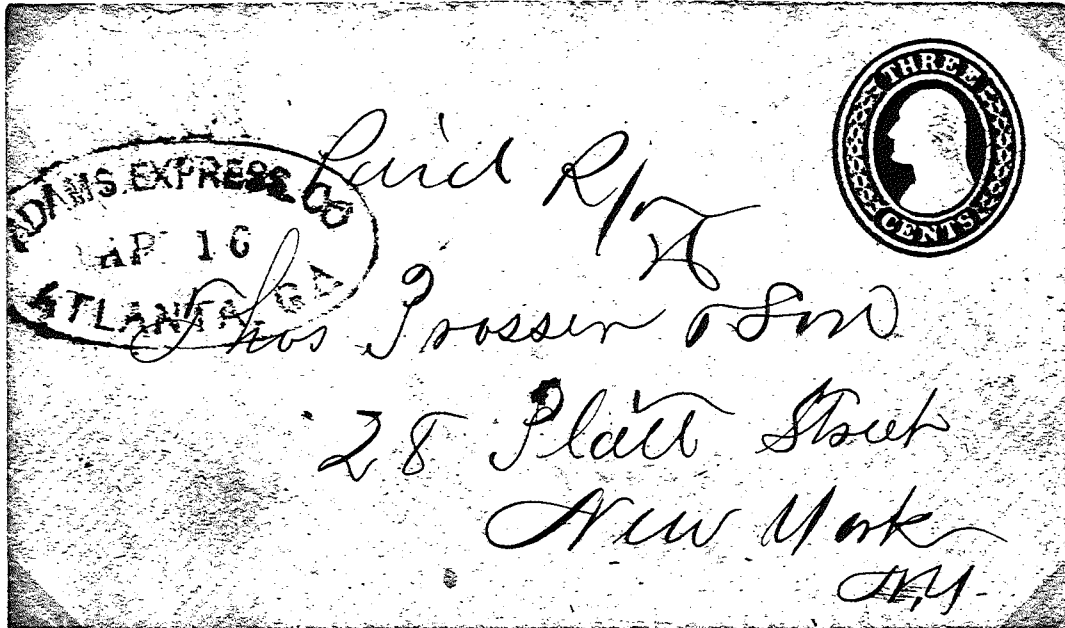 THREE
CENTS
Paid
ADAMS. EXPRESS. CO
AP 16
ATLANTA. GA
Thos Prosser & Son
28 Platt Street
New York
N.Y.